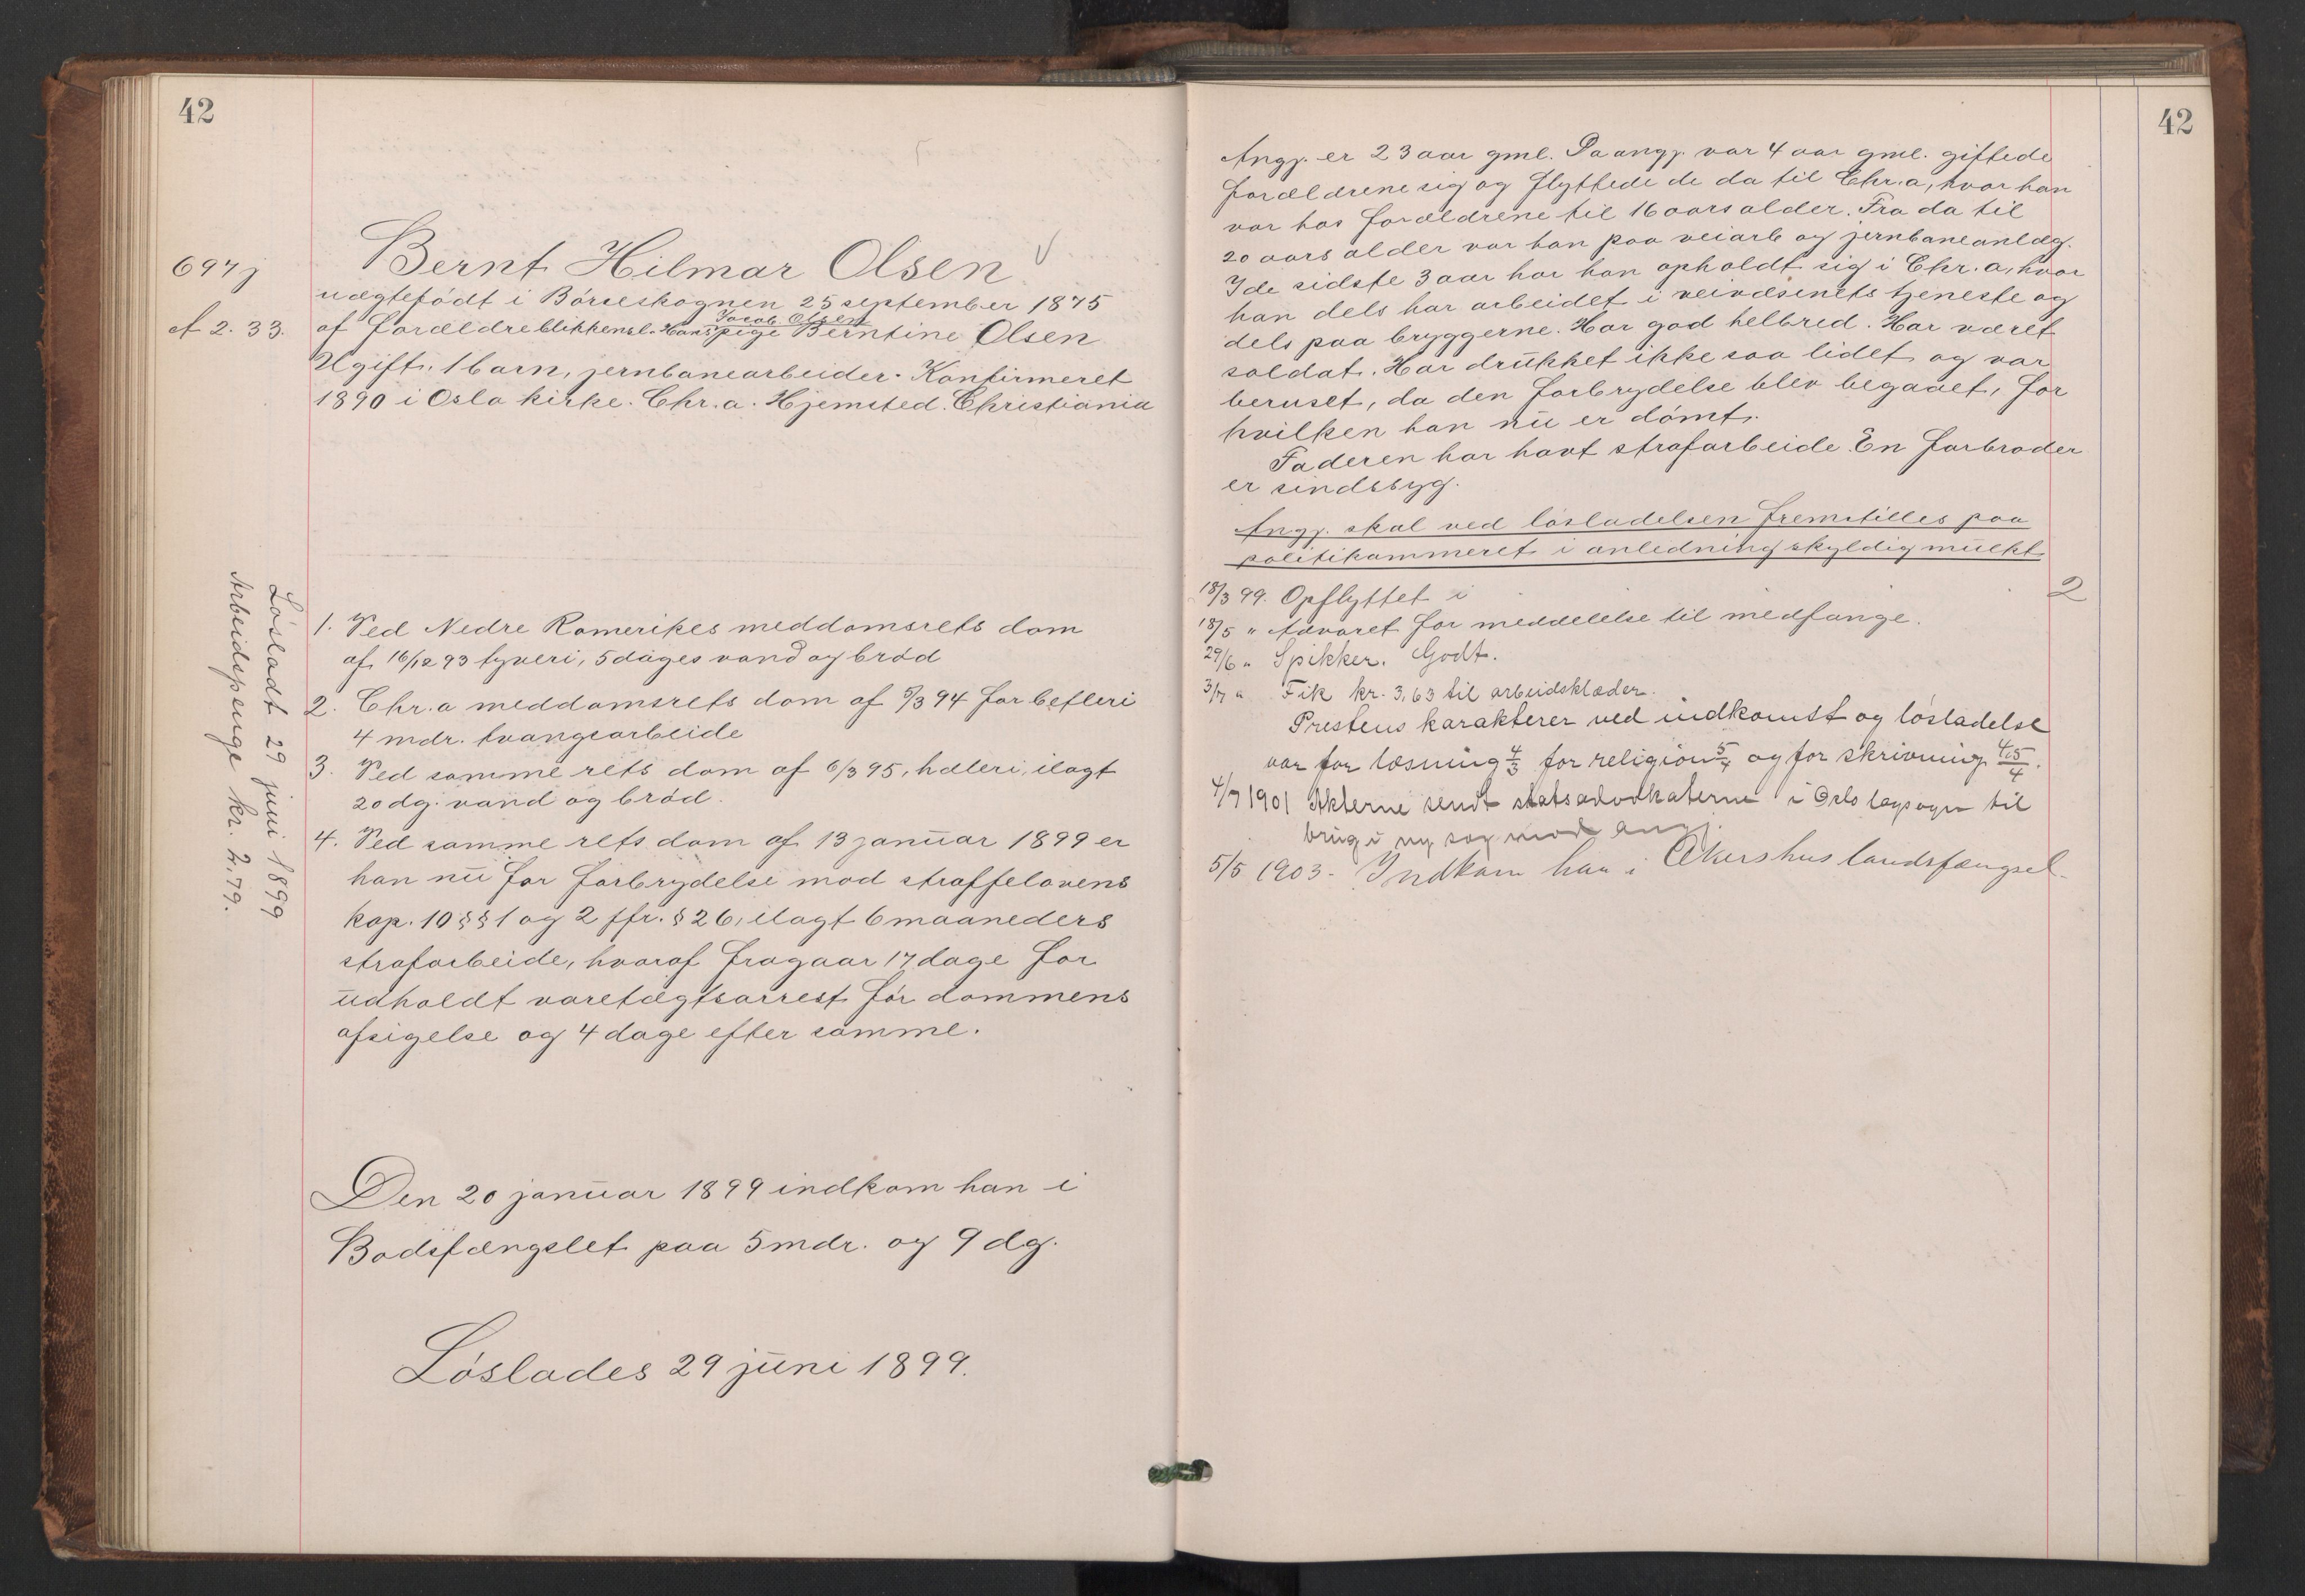 42
697 j
A 2. 33.
Bernt Hilmar Olsen
uægtefödt i Börseskognen 25 september 1875
Jacob Olsen
af forældre blikkensl. Hans pige Berntine Olsen
Ugift. 1 barn, jernbanearbeider. Konfirmeret
1890 i Oslo kirke. Chr.a. Hjemsted. Christiania
1. Ved Nedre Romerikes meddomsrets dom
af 16/12 93 tyveri, 5 dages vand og bröd
2. Chr.a meddomsrets dom af 5/3 94 for betleri
4 mdr. tvangsarbeide
3. Ved samme rets dom af 6/3 95, hæleri, ilagt
20 dg. vand og bröd.
4. Ved samme rets dom af 13 januar 1899 er
han nu for forbrydelse mod straffelovens
kap. 10 §§ 1 og 2 jfr. § 26, ilagt 6 maaneders
strafarbeide, hvoraf fragaar 17 dage for
udholdt varetægtsarrest för dommens
afsigelse og 4 dage efter samme.
Den 20 januar 1899 indkom han i
Bodsfængslet paa 5 mdr. og 9 dg.
Löslades 29 juni 1899.
Lösladt 29 juni 1899
Arbeidspenge kr. 2,79.
42
Angj. er 23 aar gml. Da angj. var 4 aar gml. giftede
forældrene sig og flyttede de da til Chr.a, hvor han
var hos forældrene til 16 aars alder. Fra da til
20 aars alder var han paa veiarb og jernbaneanlæg.
I de sidste 3 aar har han opholdt sig i Chr.a, hvor
han dels har arbeidet i veivæsenets tjeneste og
dels paa bryggerne. Har god helbred. Har været
soldat. Har drukket ikke saa lidet og var
beruset, da den forbrydelse blev begaaet, for
hvilken han nu er dömt.
Faderen har havt strafarbeide. En farbroder
er sindssyg.
Angj. skal ved lösladelsen fremstilles paa
politikammeret i anledning skyldig mulkt
18/3 99. Opflyttet i 2
18/5 " Advaret for meddelelse til medfange.
29/6 " Spikker. Godt.
3/7 " Fik kr. 3,63 til arbeidsklæder.
Prestens karakterer ved indkomst og lösladelse
var for læsning 4/3 for religion 5/4 og for skrivning 4,5/4.
4/7 1901 Akterne sendt statsadvokaterne i Oslo lagsogn til
brug i ny sag mod angj.
5/5 1903. Indkom han i Akershus landsfængsel.